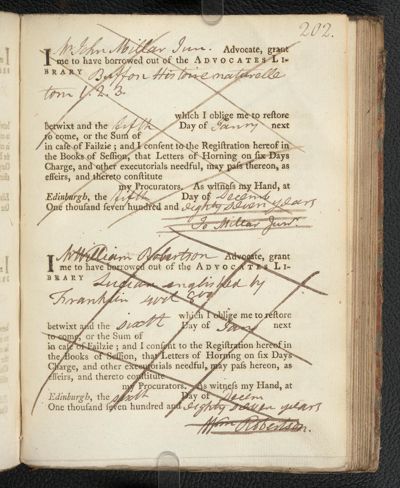 202.
I Mr John Millar Junr. Advocate, grant
me to have borrowed out of the ADVOCATES LI-
BRARY Buffon Histoire naturelle
tom 1. 2. 3.
which I oblige me to reſtore
betwixt and the fifth Day of Janry next
to come, or the Sum of
in caſe of Failzie; and I conſent to the Regiſtration hereof in
the Books of Seſſion, that Letters of Horning on ſix Days
Charge, and other executorials needful, may paſs thereon, as
effeirs, and thereto conſtitute
my Procurators. As witneſs my Hand, at
Edinburgh, the fifth Day of Decemr
One thouſand ſeven hundred and eighty seven years
Jo Millar Junr.
I Mr William Robertson Advocate, grant
me to have borrowed out of the ADVOCATES LI-
BRARY Lucian englished by
Francklin
which I oblige me to reſtore
betwixt and the sixth Day of Janry next
to come, or the Sum of
in caſe of Failzie; and I conſent to the Regiſtration hereof in
the Books of Seſſion, that Letters of Horning on ſix Days
Charge, and other executorials needful, may paſs hereon, as
effeirs, and thereto conſtitute
my Procurators. As witneſs my Hand, at
Edinburgh, the sixth Day of Decem
One thouſand ſeven hundred and eighty seven years
Wm Robertson.